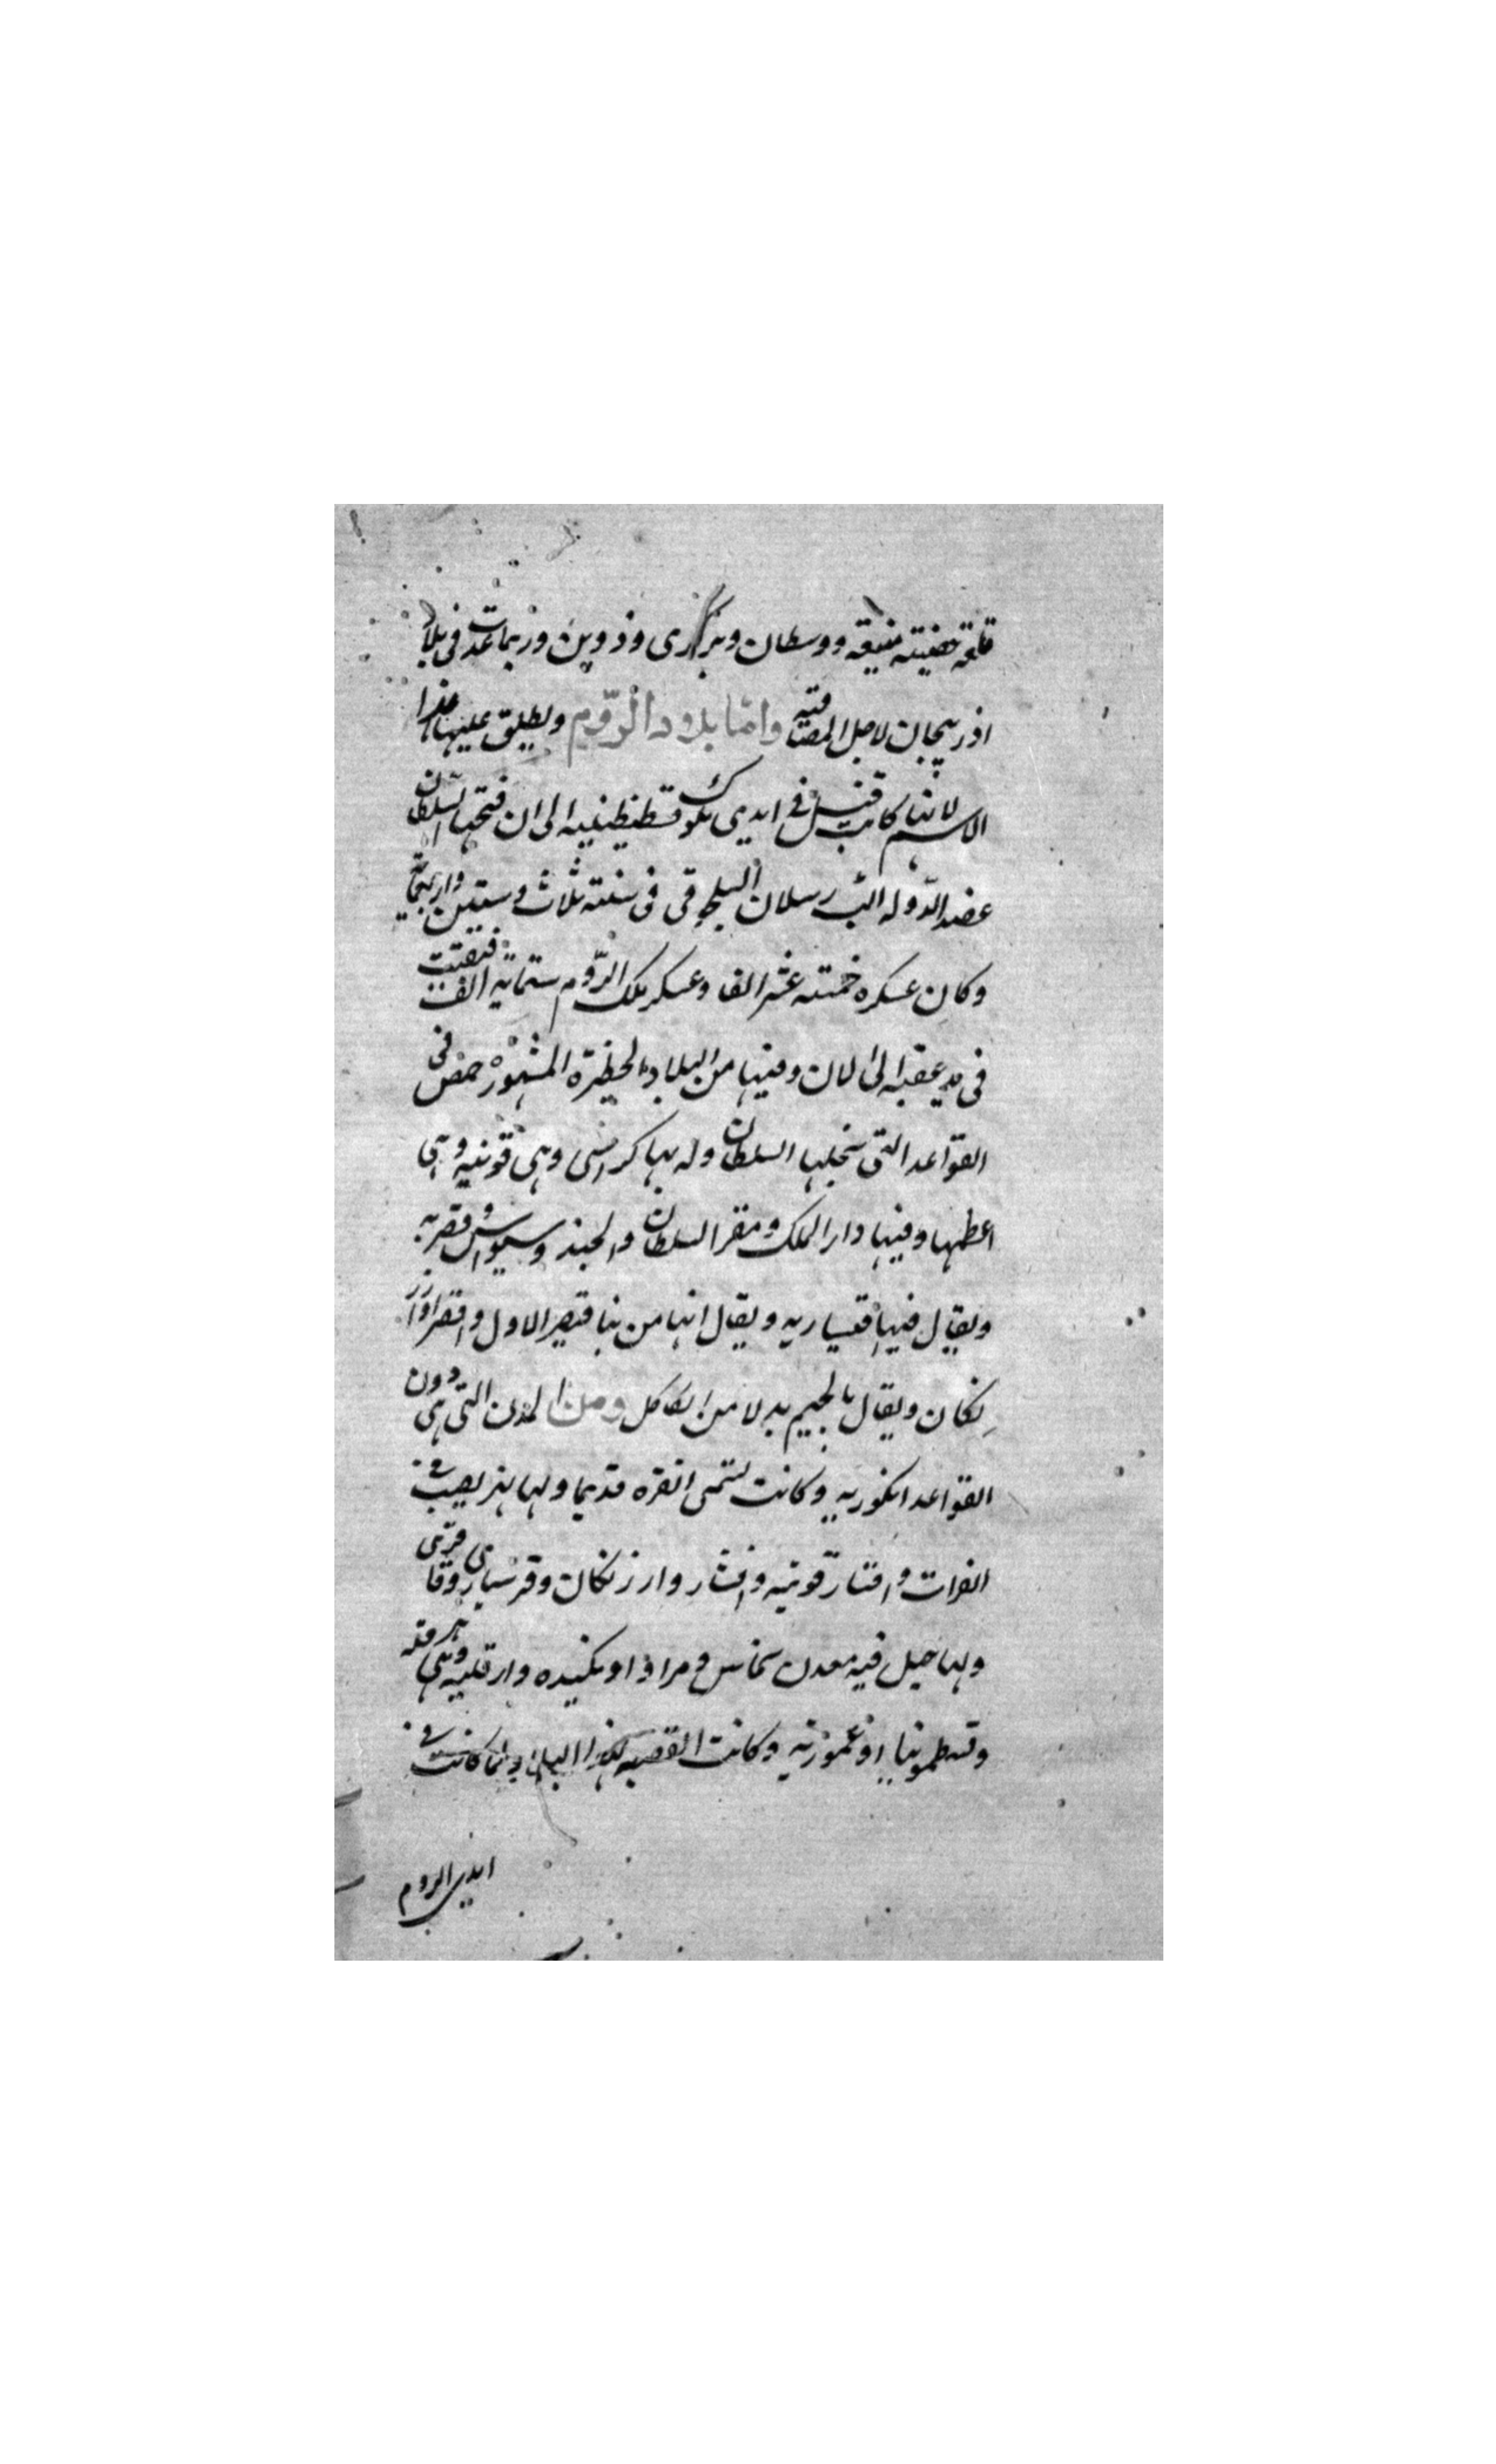 قلعة حصينة منيعة ووسطان وبركرى ودوين وربما عدت فى بلاد
اذربيجان لاجل المصاقبة واما بلاد الروم ويطلق عليها هذا
الاسم لانها كانت قبل فى ايدى ملوك قسطنطينيه الى ان فتحها السلطان
عضد الدوله الب رسلان السلجوقى فى سنة ثلاث وستين واربعماية
وكان عسكره خمسة عشر الفا وعسكر ملك الروم ستماية الف فبقيت
فى يد عقبه الى الان وفيها من البلاد الخطيرة المشهورة فى
القواعد التى يحلها السلطان وله بها كراسى وهى قونيه وهى
اعظمها وفيها دار الملك ومقر السلطان والجند وسيواس وقصريه
ويقال فيها قيساريه ويقال انها من بنا قيصر الاول واقصرا وارز
نكان ويقال بالجيم بدلا من الكاف ومن المدن التى هى دون
القواعد انكوريه وكانت تسمى انقره قديما ولها نهر يصب فى
الفرات وارزنكان
ولها جبل فيه معدن نحاس ونكيده وارقليه وهى هرقله
وقسطمونيا وعموريه وكانت القصبه لهذا البلاد لما كانت فى
ايدى الروم